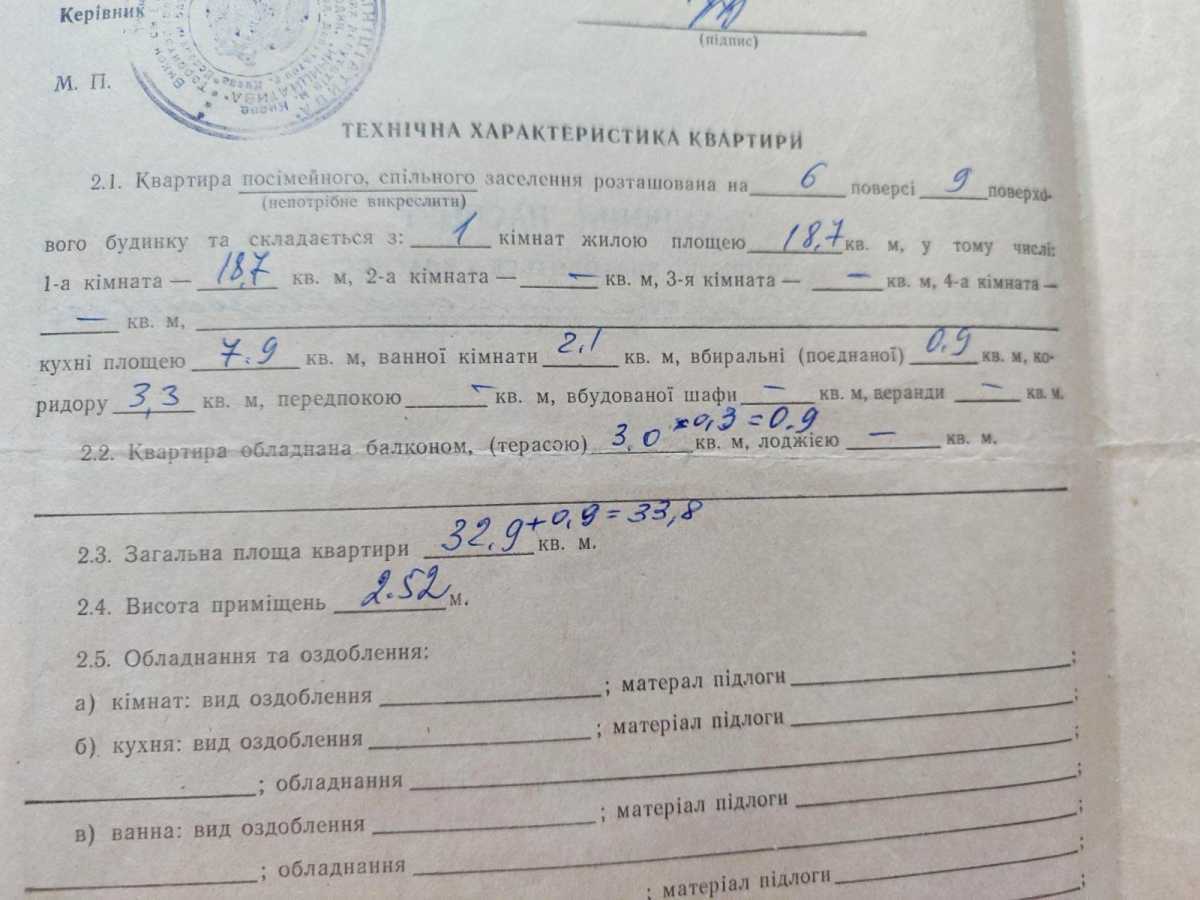 Керівник
(підпис)
М. П.
ТЕХНІЧНА ХАРАКТЕРИСТИКА КВАРТИРИ
2.1. Квартира посімейного, спільного заселення розташована на 6 поверсі 9 поверхо-
(непотрібне викреслити)
вого будинку та складається з: 1 кімнат жилою площею 18,7 кв. м, у тому числі:
1-а кімната — 18,7 кв. м, 2-а кімната — – кв. м, 3-я кімната — – кв. м, 4-а кімната —
– кв. м,
кухні площею 7.9 кв. м, ванної кімнати 2.1 кв. м, вбиральні (поєднаної) 0.9 кв. м, ко-
ридору 3,3 кв. м, передпокою – кв. м, вбудованої шафи – кв. м, веранди – кв. м.
2.2. Квартира обладнана балконом, (терасою) 3,0 ×0,3=0.9 кв. м, лоджією – кв. м.
2.3. Загальна площа квартири 32.9+0,9=33,8 кв. м.
2.4. Висота приміщень 2.52 м.
2.5. Обладнання та оздоблення:
а) кімнат: вид оздоблення ; матерал підлоги ;
б) кухня: вид оздоблення ; матеріал підлоги ;
; обладнання ;
в) ванна: вид оздоблення ; матеріал підлоги ;
; обладнання ;
; матеріал підлоги ;